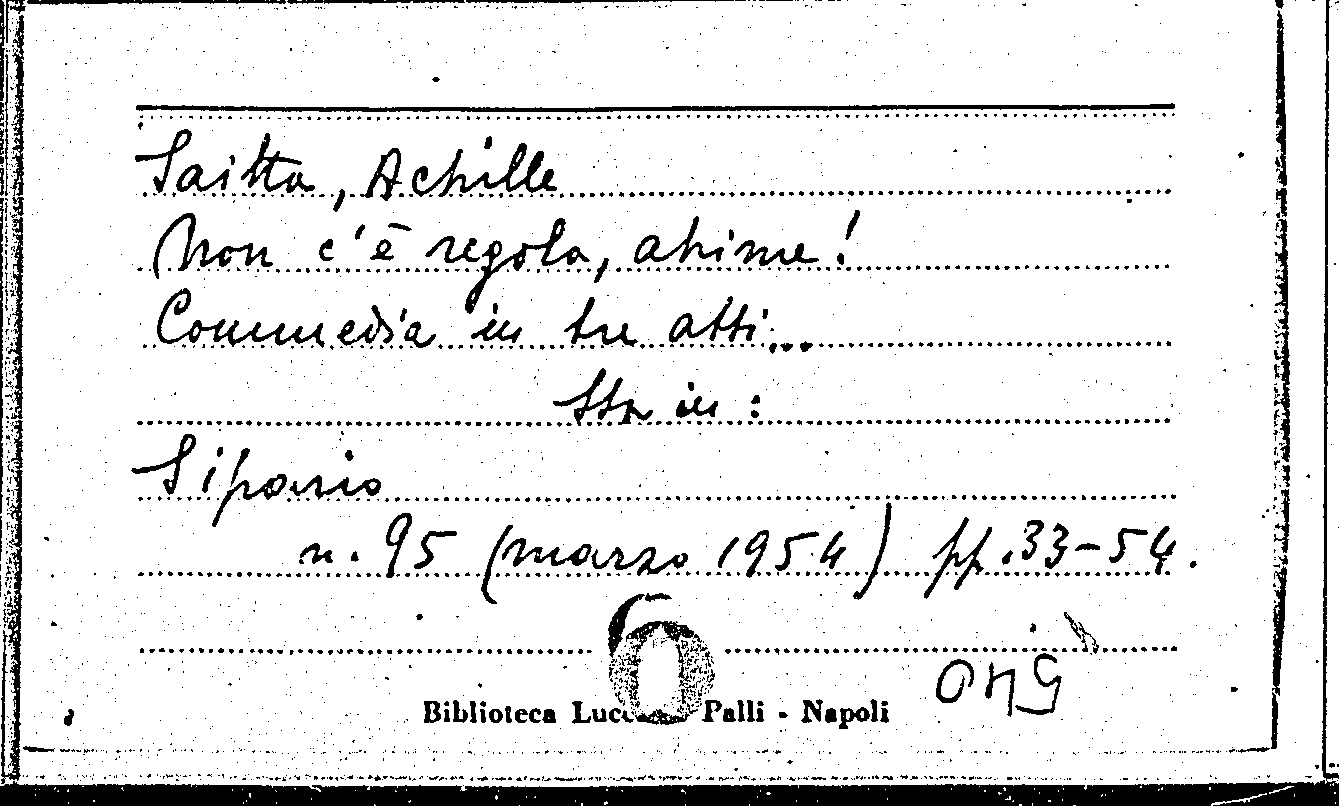 Saitta, Achille
Non c'è regola, ahimè!
Commedia in tre atti...
Sta in:
Sipario
n. 95 (marzo 1954) pp. 33-54.
540
Biblioteca Palli - Napoli